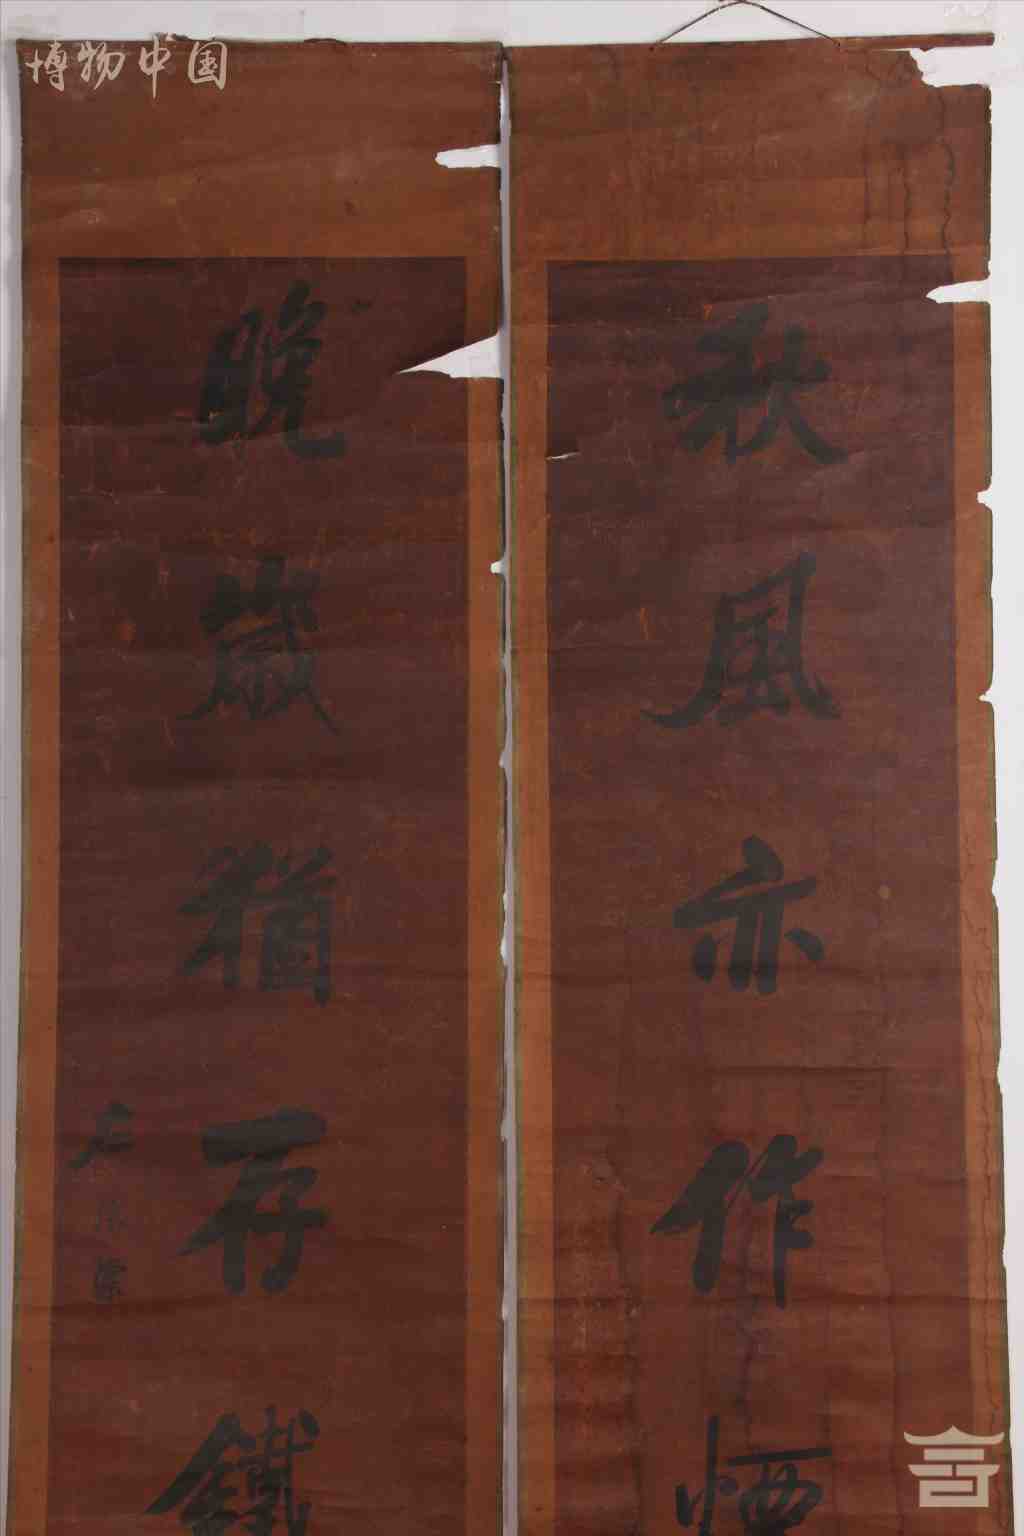 博物中国
秋風亦作恓
晚歲猶存鐵
石